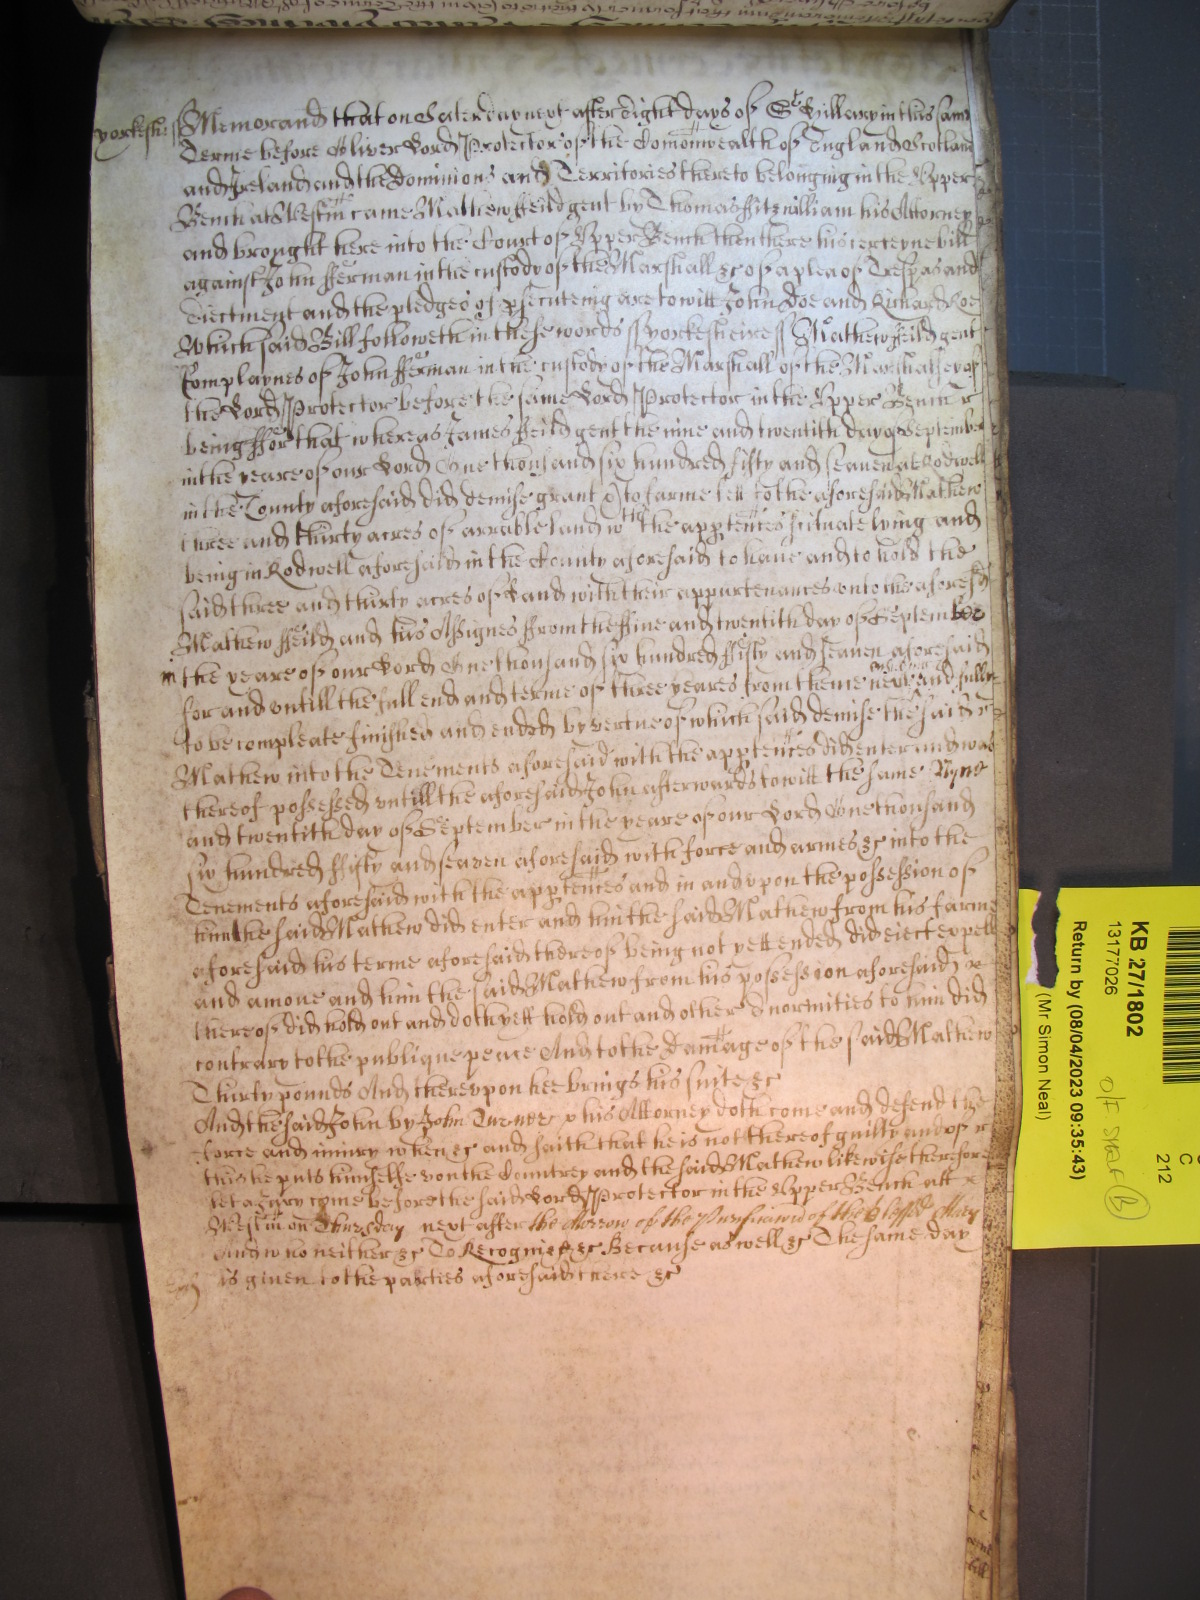 yorkesh: ss Memorand that on Saterday next after Eight days of St Hillary in this same
Terme before Oliver Lord Protector of the Comonwealth of England Scotland
and Ireland and the Dominions and Territories thereto belonging in the Upper
Bench at Westm came Mathew Feild gent by Thomas Fitzwilliam his Attorney
and brought here into the Court of Upper Bench then there his certeyne bill
against John fferman in the custody of the Marshall &c of a plea of Trespas and
Eiectment and the pledges of psecuteing are to witt John Doe and Richard Roe
Which said Bill followeth in these words ss yorkesheire ss Mathew Feild gent
Complaynes of John fferman in the custody of the Marshall of the Marshalsey of
the Lord Protector before the same Lord Protector in the Upper Bench
being ffor that whereas James Feild gent the nine and twentith day of September
in the yeare of our Lord One thousand six hundred fifty and seaven at Rodwell
in the County aforesaid did demise grant & to farme lett to the aforesaid Mathew
three and thirty acres of arrable land wth the apptences scituate lying and
being in Rodwell aforesaid in the County aforesaid to have and to hold the
said three and thirty acres of Land with their appurtenances unto the aforesd
Mathew Feild and his Assignes from the Nine and twentith day of September
in the yeare of our Lord One thousand six hundred ffifty and seaven aforesaid
for and untill the full end and terme of three yeares from thence next and fully
to be compleate finished and ended by vertue of which said demise the said
Mathew into the Tenements aforesaid with the apptences did enter and was
thereof possessed untill the aforesaid John afterwards to witt the same Nyne
and twentith day of September in the yeare of our Lord One thousand
six hundred ffifty and seaven aforesaid with force and armes &c into the
Tenements aforesaid with the apptences and in and upon the possession of
him the said Mathew did enter and him the said Mathew from his farme
aforesaid his terme aforesaid thereof being not yett ended did eiect expell
and amove and him the said Mathew from his possession aforesaid
thereof did hold out and doth yett hold out and other Enormities to him did
contrary to the publique peace And to the Damage of the said Mathew
Thirty pounds And thereupon hee brings his suite &c
And the said John by John Turner his Attorney doth come and defend the
force and iniury when &c and saith that he is not thereof guilty and of
this he puts himselfe upon the Countrey and the said Mathew likewise therefore
let a Jury come before the said Lord Protector in the Upper Bench att
Westm on Thursday next after the Morrow of the Purificacion of the blessed Mary
And who neither &c To Recognize &c Because as well &c The same day
is given to the parties aforesaid there &c
KB 27/1802
13177026
Return by (08/04/2023 09:35:43)
(Mr Simon Neal)
C
212
O/F Staf (B)